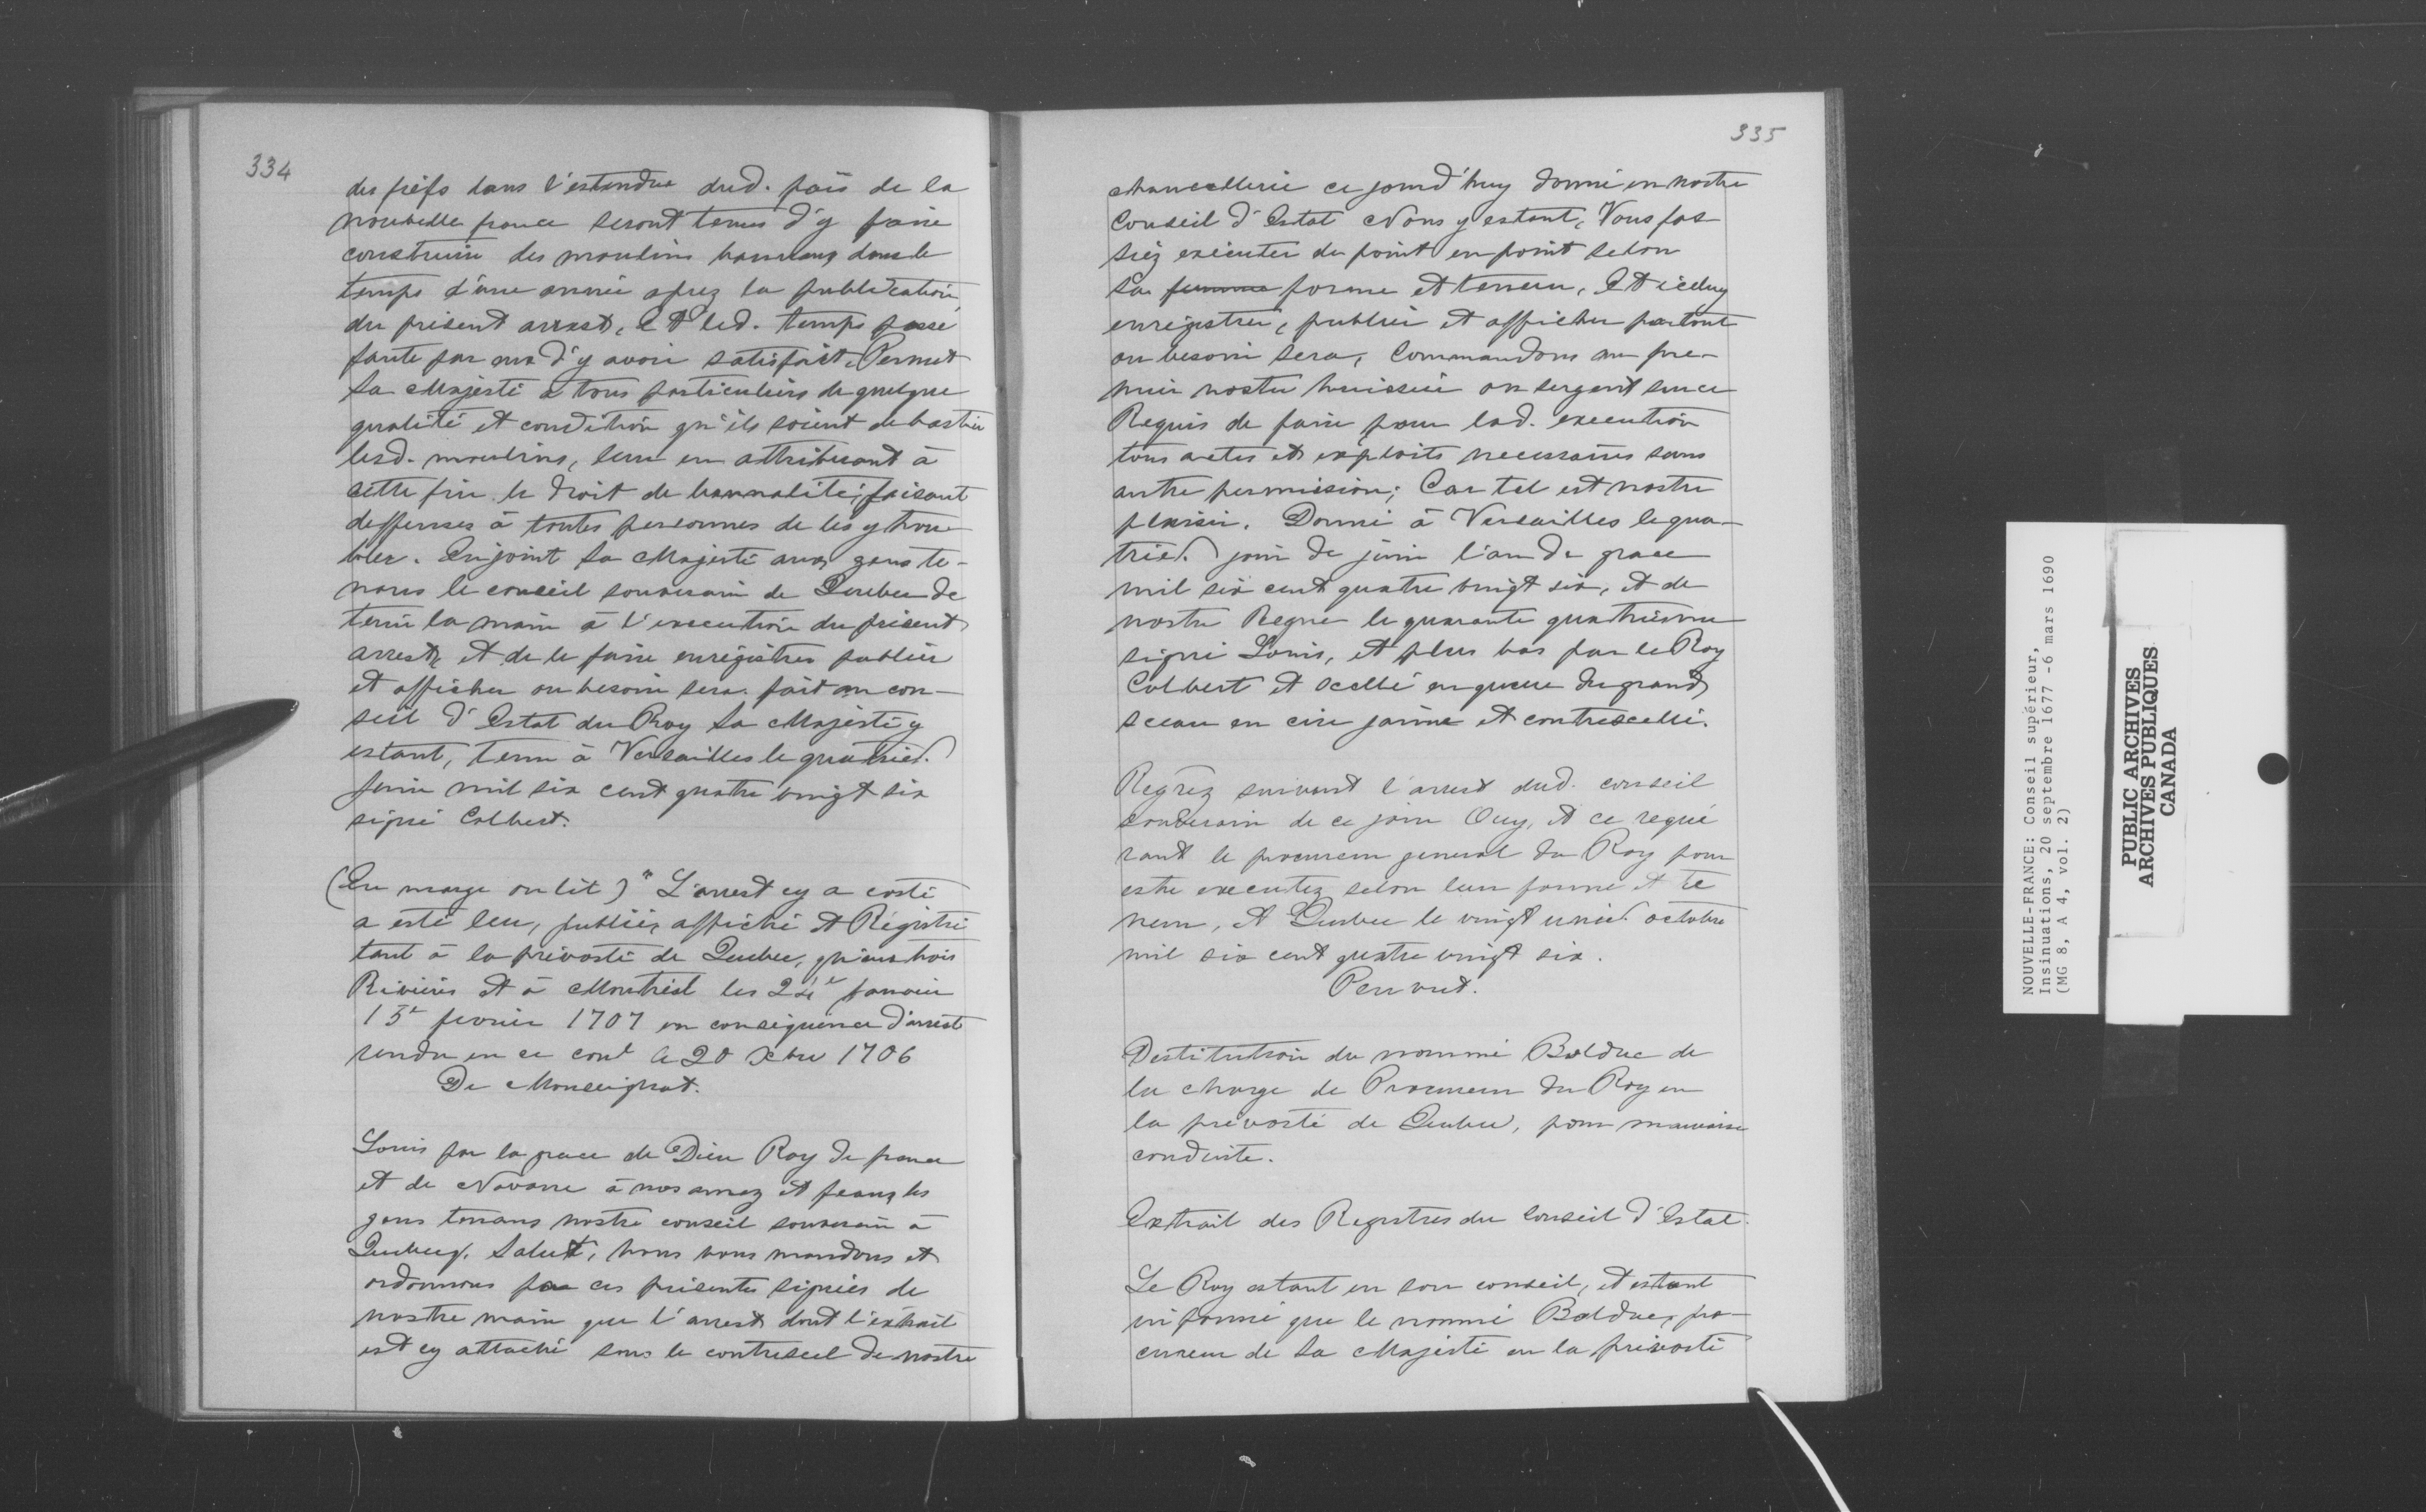 334
des fiefs dans l'estendue dud. païs de la
nouvelle france seront tenus d'y faire
construire des moulins bannaux dans le
temps d'une année aprez la publication
du présent arrest, Et led. temps passé
faute par eux d'y avoir satisfait, Permet
Sa Majesté à tous particuliers de quelque
qualité et condition qu'ils soient de bastir
lesd. moulins, leur en attribuant à
cette fin le droit de bannalité; faisant
deffenses à toutes personnes de les y trou-
bler. Enjoint Sa Majesté aux gens te-
nans le conseil souverain de Quebec de
tenir la main à l'execution du présent
arrest, et de le faire enrégistrer publier
et afficher ou besoin sera. fait au con-
seil d'Estat du Roy Sa Majesté y
estant, tenu à Versailles le quatried.
Juin mil six cent quatre vingt six
signé Colbert.
(En marge on lit) "L'arrest cy a costé
a esté leu, publié, affiché et Régistré
tant à la prévosté de Quebec, qu'aux trois
Rivières et à Montréal les 24e janvier
15e fevrier 1707 en conséquence d'arrest
rendu en ce conl le 20 Xbre 1706
De Monseignat.
Louis par la grace de Dieu Roy de france
et de Navarre à nos amez et feaux les
gens tenans nostre conseil souverain à
Quebecq. Salut, nous vous mandons et
ordonnons par ces présentes signées de
nostre main que l'arrest dont l'extrait
est cy attaché sous le contrescel de nostre
335
chancellerie ce jourd'huy donné en nostre
Conseil d'Estat Nous y estant, Vous fas
siez exécuter de point en point selon
sa forme et teneur, Et iceluy
enrégistrer, publier et afficher partout
ou besoin sera, Commandons au pre-
mier nostre huissier ou sergent sur ce
Requis de faire pour lad. execution
tous actes et exploits necessaires sans
autre permission; Car tel est nostre
plaisir. Donné à Versailles le qua-
tried. jour de juin l'an de grace
mil six cent quatre vingt six, et de
nostre Regne le quarante quatriesme
signé Louis, et plus bas par le Roy
Colbert et scellé en queue du grand
sceau en cire jaune et contrescellé.
Regrez suivant l'arrest dud. conseil
souverain de ce jour Ouy, et ce requé
rant le procureur general du Roy pour
estre executez selon leur forme et te
neur, A Quebec le vingt unied. octobre
mil six cent quatre vingt six.
Peuvret.
Destitution du nommé Bolduc de
la charge de Procureur du Roy en
la prévosté de Quebec, pour mauvaise
conduite.
Extrait des Registres du Conseil d'Estat.
Le Roy estant en son conseil, et estant
informé que le nommé Bolduc, pro-
cureur de Sa Majesté en la prévosté
NOUVELLE-FRANCE: Conseil supérieur,
Insinuations, 20 septembre 1677 -6 mars 1690
(MG 8, A 4, vol. 2)
PUBLIC ARCHIVES
ARCHIVES PUBLIQUES
CANADA